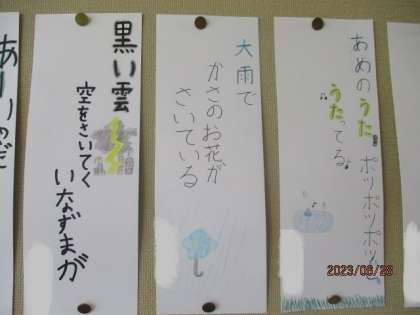 あめのうた ポツポツポツと
うたってる
大雨で
かさのお花が
さいている
黒い雲
空をさいてく
いなずまが
2023/06/28